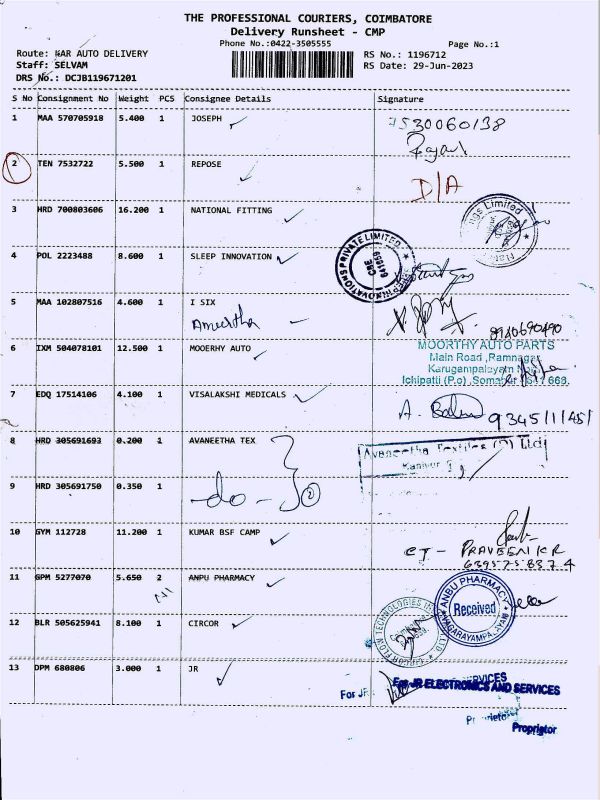 THE PROFESSIONAL COURIERS, COIMBATORE
Delivery Runsheet - CMP
Phone No.:0422-3505555
Page No.:1
Route: NAR AUTO DELIVERY
RS No.: 1196712
Staff: SELVAM
RS Date: 29-Jun-2023
DRS No.: DCJB119671201
S No Consignment No Weight PCS Consignee Details Signature
1 MAA 570705918 5.400 1 JOSEPH 7530060138
2 TEN 7532722 5.500 1 REPOSE
D/A
3 HRD 700803606 16.200 1 NATIONAL FITTING
4 POL 2223488 8.600 1 SLEEP INNOVATION
5 MAA 102807516 4.600 1 I SIX
6 IXM 504078101 12.500 1 MOOERHY AUTO
MOORTHY AUTO PARTS
Main Road ,Ramnagar
Karugampalayam
Ichipatti (P.o)
7 EDQ 17514106 4.100 1 VISALAKSHI MEDICALS
8 HRD 305691693 0.200 1 AVANEETHA TEX
9 HRD 305691750 0.350 1
-do-
2
10 GYM 112728 11.200 1 KUMAR BSF CAMP
11 GPM 5277070 5.650 2 ANPU PHARMACY
ANBU PHARMACY
Received
12 BLR 505625941 8.100 1 CIRCOR
13 DPM 680806 3.000 1 JR
For JR
For JR ELECTRONICS AND SERVICES
Proprietor